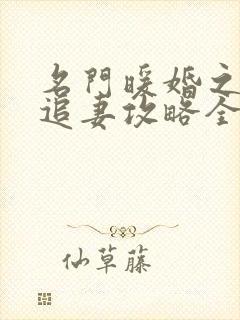 名門暖婚之
追妻攻略全
仙草藤